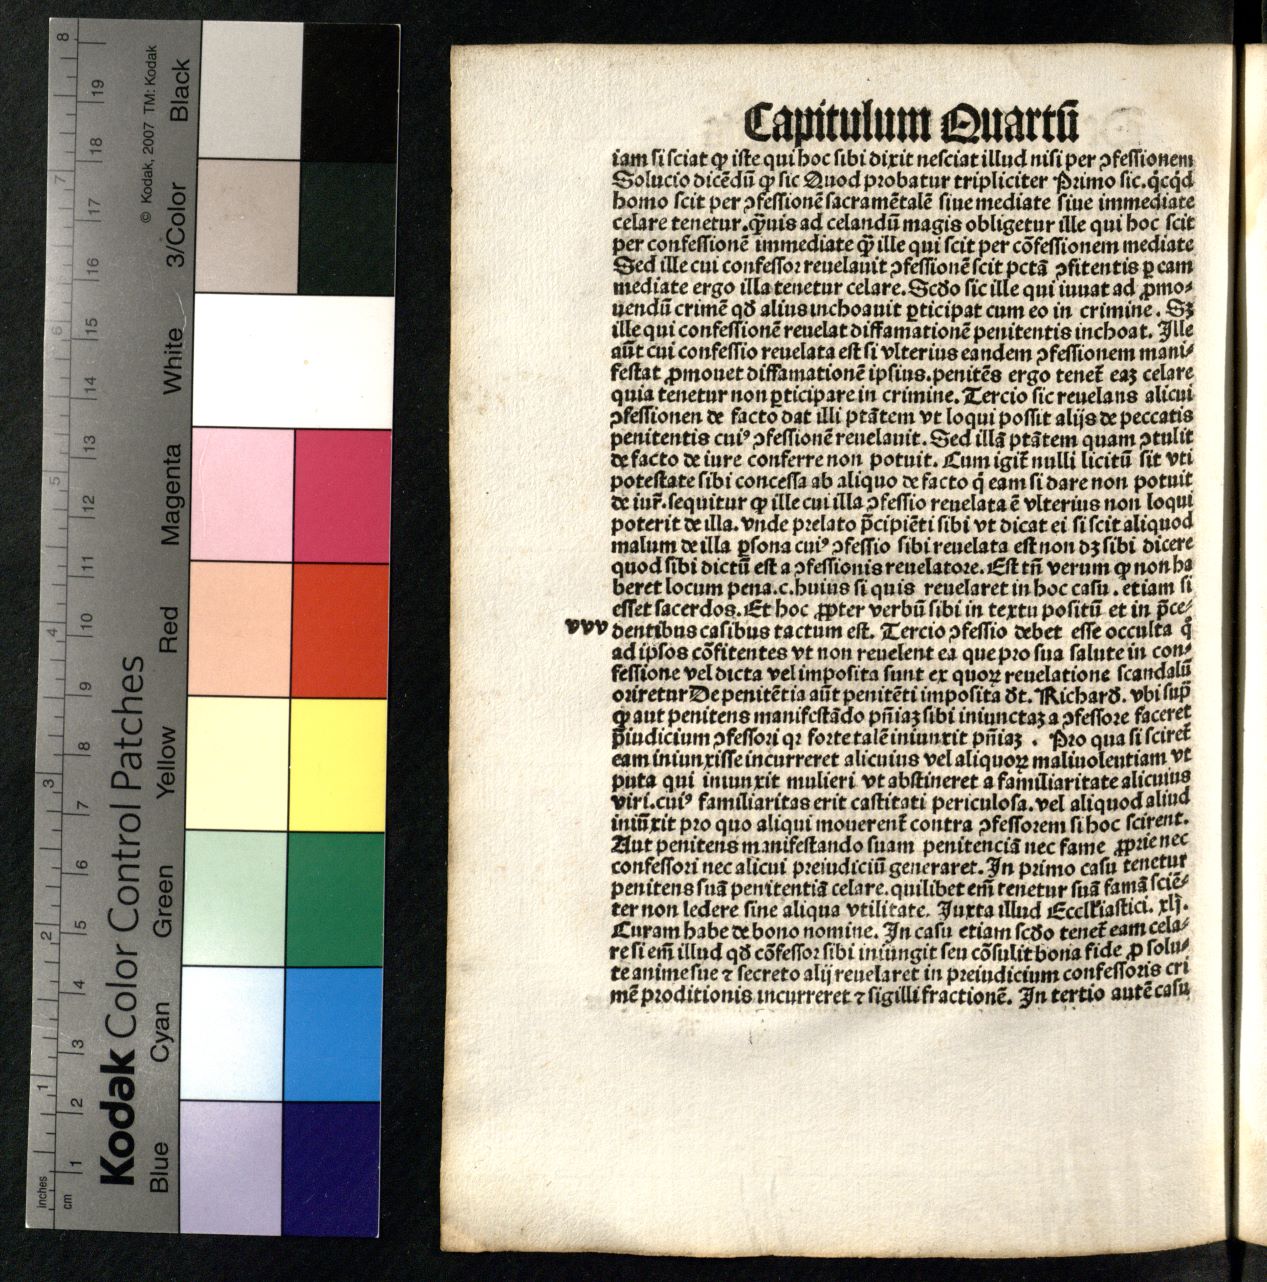 Capitulum Quartū
iam si sciat ꝙ iste qui hoc sibi dixit nesciat illud nisi per ꝯfessionem
Solucio dicēdū ꝙ sic Quod probatur tripliciter Primo sic. q̇cq̇d
homo scit per ꝯfessionē sacramētalē siue mediate siue immediate
celare tenetur. q̄uis ad celandū magis obligetur ille qui hoc scit
per confessionē immediate q̄ ille qui scit per cōfessionem mediate
Sed ille cui confessor reuelauit ꝯfessionē scit pctā ꝯfitentis ꝑ eam
mediate ergo illa tenetur celare. Scďo sic ille qui iuuat ad ꝓmo⸗
uendū crimē qď alius inchoauit ꝑticipat cum eo in crimine. Sꝫ
ille qui confessionē reuelat diffamationē penitentis inchoat. Ille
aūt cui confessio reuelata est si vlterius eandem ꝯfessionem mani⸗
festat ꝓmouet diffamationē ipsius. penitēs ergo tenet̄ eaꝫ celare
quia tenetur non ꝑticipare in crimine. Tercio sic reuelans alicui
ꝯfessionen de facto dat illi ptātem vt loqui possit alijs de peccatis
penitentis cuiꝰ ꝯfessionē reuelauit. Sed illā ptātem quam ꝯtulit
de facto de iure conferre non potuit. Cum igit̄ nulli licitū sit vti
potestate sibi concessa ab aliquo de facto q̇ eam si dare non potuit
de iur̄. sequitur ꝙ ille cui illa ꝯfessio reuelata ē vlterius non loqui
poterit de illa. vnde prelato p̄cipiēti sibi vt dicat ei si scit aliquod
malum de illa ꝑsona cuiꝰ ꝯfessio sibi reuelata est non dꝫ sibi dicere
quod sibi dictū est a ꝯfessionis reuelatore. Est tn̄ verum ꝙ non ha
beret locum pena .c. huius si quis reuelaret in hoc casu. etiam si
esset sacerdos. Et hoc ꝓpter verbū sibi in textu positū et in p̄ce⸗
vvv dentibus casibus tactum est. Tercio ꝯfessio debet esse occulta q̊
ad ipsos cōfitentes vt non reuelent ea que pro sua salute in con⸗
fessione vel dicta vel imposita sunt ex quoꝝ reuelatione scandalū
oriretur De penitētia aūt penitēti imposita ďt. Richarď. vbi sup̄
ꝙ aut penitens manifestādo pn̄iaꝫ sibi iniunctaꝫ a ꝯfessore faceret
p̄iudicium ꝯfessori qꝛ forte talē iniunxit pn̄iaꝫ. Pro qua si sciret̄
eam iniunxisse incurreret alicuius vel aliquoꝝ maliuolentiam vt
puta qui iniunxit mulieri vt abstineret a familiaritate alicuius
viri. cuiꝰ familiaritas erit castitati periculosa. vel aliquod aliud
iniūxit pro quo aliqui mouerent̄ contra ꝯfessorem si hoc scirent.
Aut penitens manifestando suam penitenciā nec fame ꝓprie nec
confessori nec alicui preiudiciū generaret. In primo casu tenetur
penitens suā penitentiā celare. quilibet em̄ tenetur suā famā sciē⸗
ter non ledere sine aliqua vtilitate. Juxta illud Eccĺiastici. xlj.
Curam habe de bono nomine. In casu etiam scďo tenet̄ eam cela⸗
re si em̄ illud qď cōfessor sibi iniungit seu cōsulit bona fide ꝓ solu⸗
te anime sue ⁊ secreto alij reuelaret in preiudicium confessoris cri
mē proditionis incurreret ⁊ sigilli fractionē. In tertio autē casu
Kodak Color Control Patches
© Kodak, 2007 TM: Kodak
Blue Cyan Green Yellow Red Magenta White 3/Color Black
inches 1 2 3 4 5 6 7 8
cm 1 2 3 4 5 6 7 8 9 10 11 12 13 14 15 16 17 18 19